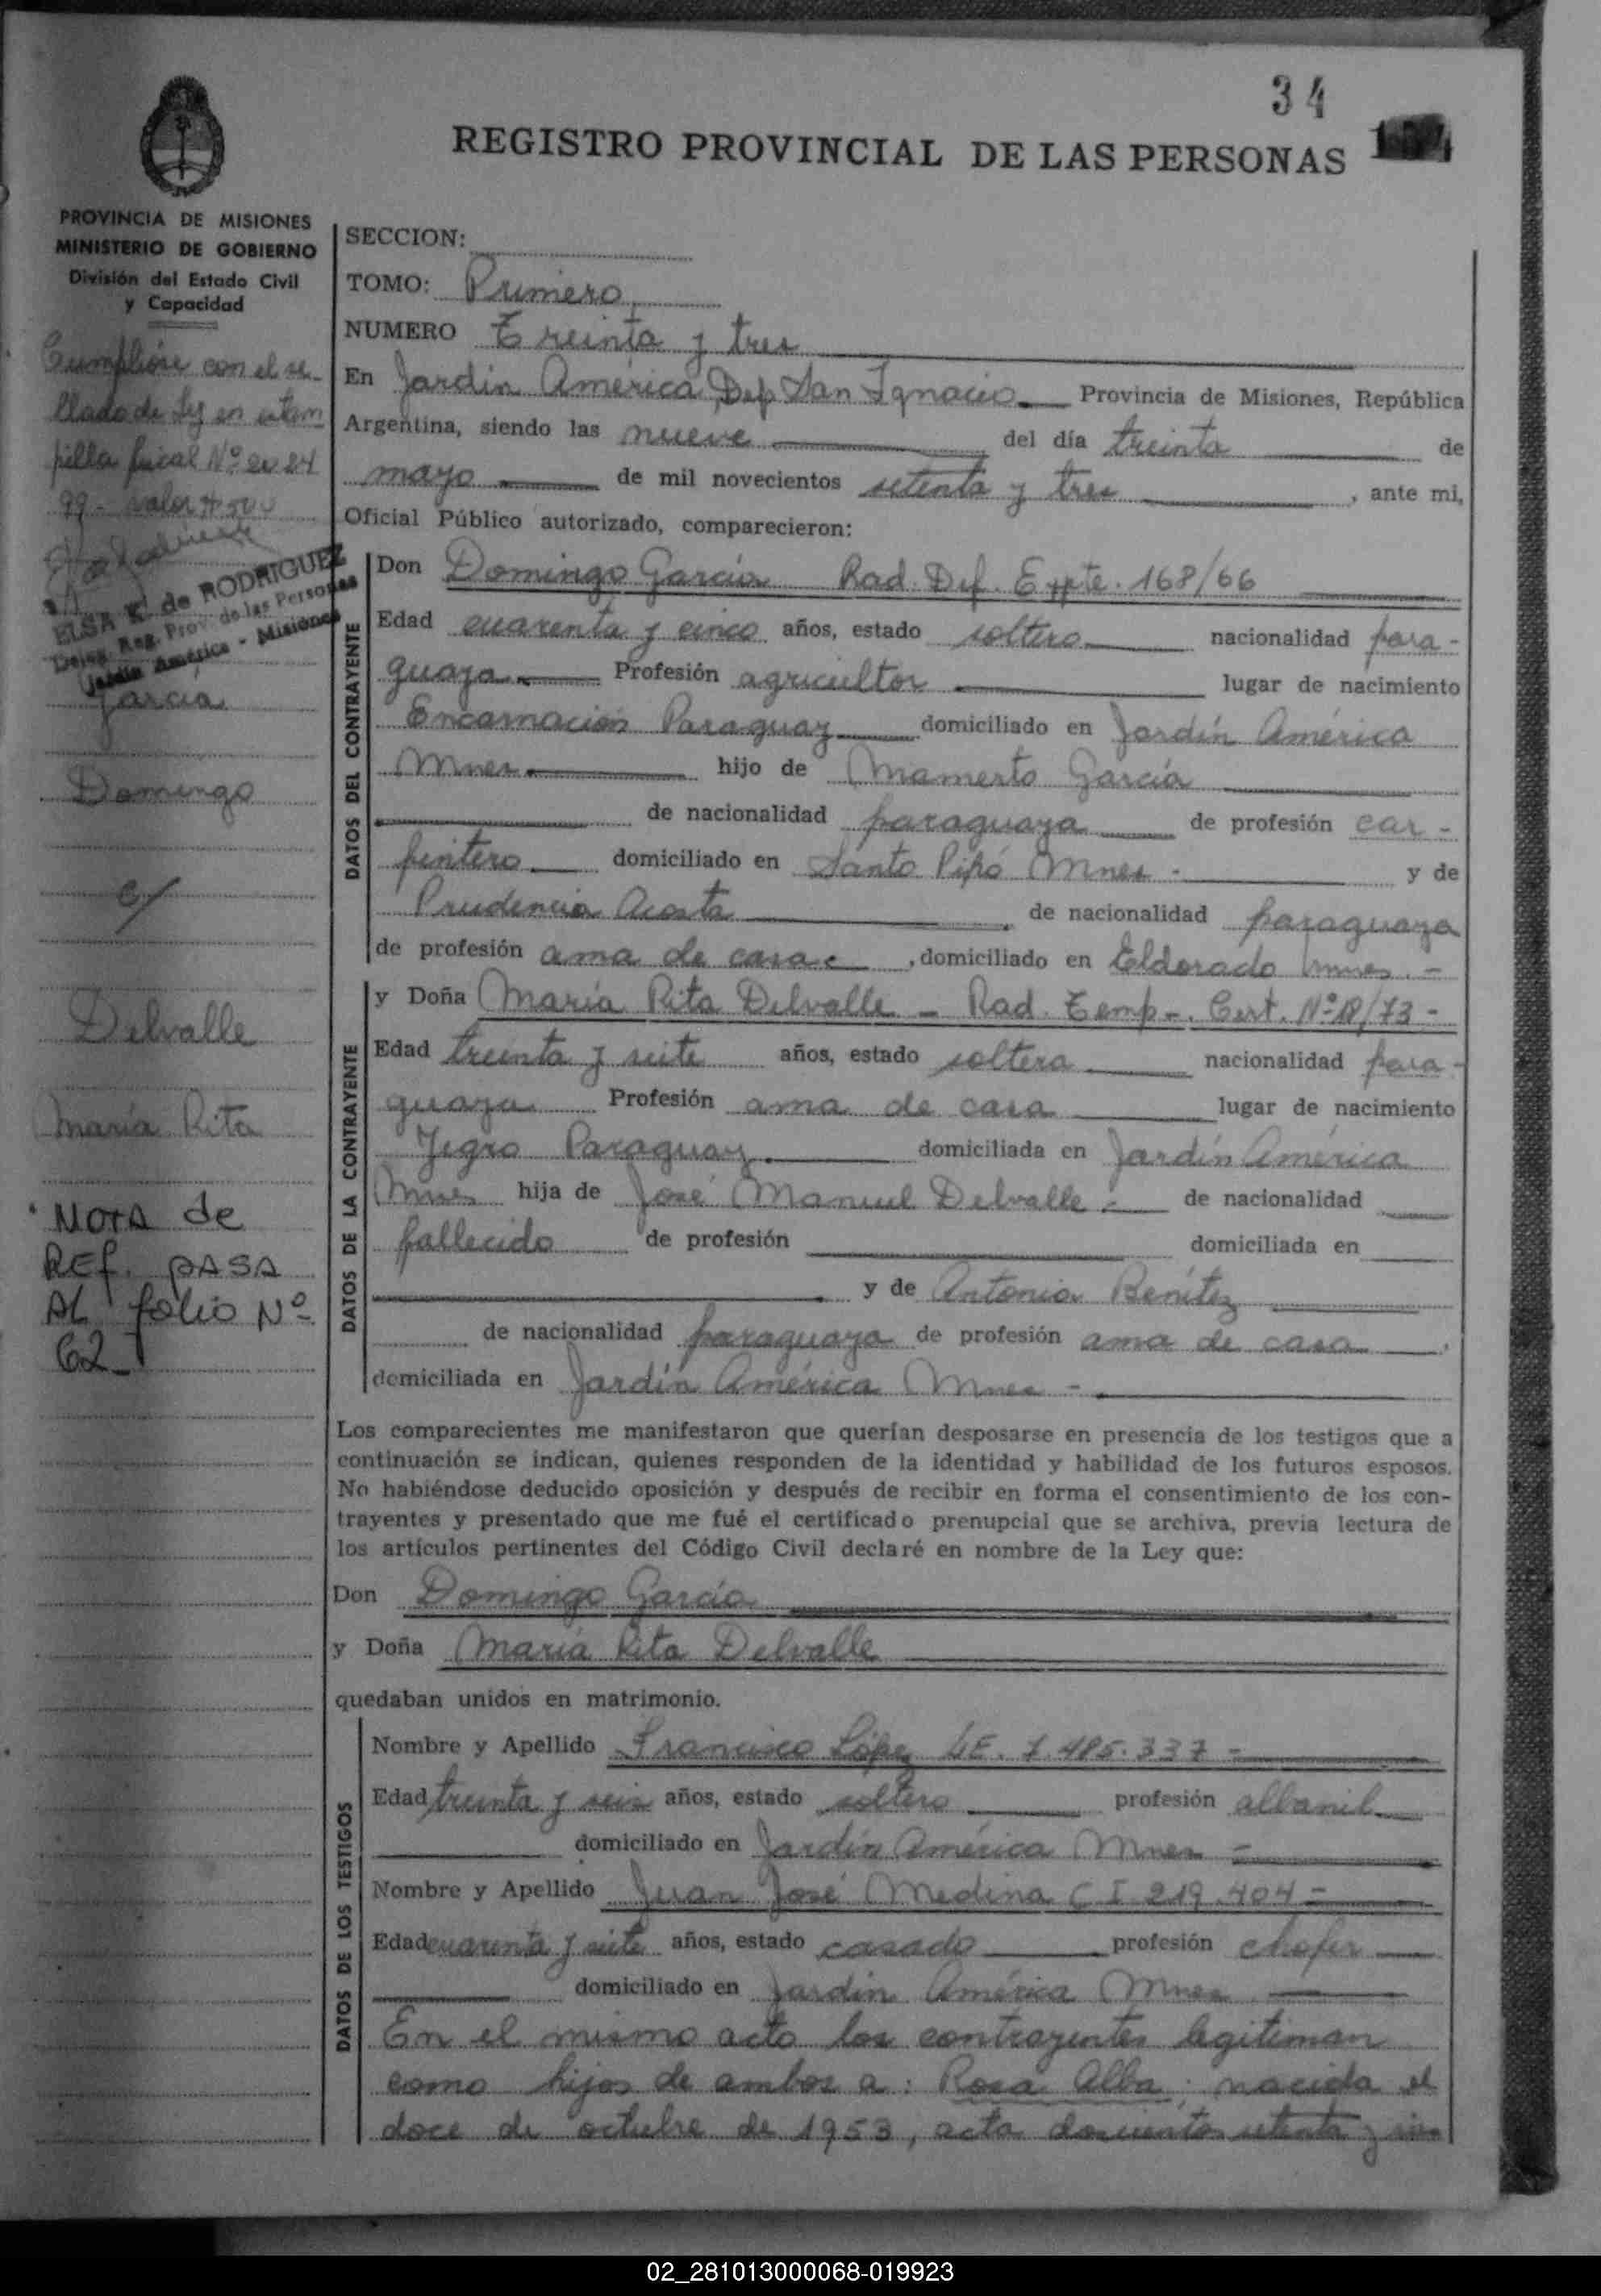 34
REGISTRO PROVINCIAL DE LAS PERSONAS
PROVINCIA DE MISIONES
MINISTERIO DE GOBIERNO
División del Estado Civil
y Capacidad
Cumplióse con el se-
llado de Ley en estam
pilla fiscal Nº 20 24
99 - valor $ 500
ELSA K. de RODRIGUEZ
Deleg. Reg. Prov. de las Personas
Jardín América - Misiones
García
Domingo
c/
Delvalle
María Rita
NOTA de
REF. PASA
AL folio Nº
62
SECCION:
TOMO: Primero
NUMERO Treinta y tres
En Jardín América, Dep San Ignacio Provincia de Misiones, República
Argentina, siendo las nueve del día treinta de
mayo de mil novecientos setenta y tres, ante mi,
Oficial Público autorizado, comparecieron:
DATOS DEL CONTRAYENTE
Don Domingo García Rad. Def. Expte. 168/66
Edad cuarenta y cinco años, estado soltero nacionalidad para-
guaya Profesión agricultor lugar de nacimiento
Encarnación Paraguay domiciliado en Jardín América
Mnes hijo de Mamerto García
de nacionalidad paraguaya de profesión car-
pintero domiciliado en Santo Pipó Mnes - y de
Prudencia Acosta de nacionalidad paraguaya
de profesión ama de casa, domiciliado en Eldorado Mnes. -
DATOS DE LA CONTRAYENTE
y Doña María Rita Delvalle - Rad. Temp-. Cert. Nº 18/73 -
Edad treinta y siete años, estado soltera nacionalidad para-
guaya Profesión ama de casa lugar de nacimiento
Yegro Paraguay domiciliada en Jardín América
Mnes hija de José Manuel Delvalle - de nacionalidad
fallecido de profesión domiciliada en
y de Antonia Benítez
de nacionalidad paraguaya de profesión ama de casa
domiciliada en Jardín América Mnes -
Los comparecientes me manifestaron que querían desposarse en presencia de los testigos que a
continuación se indican, quienes responden de la identidad y habilidad de los futuros esposos.
No habiéndose deducido oposición y después de recibir en forma el consentimiento de los con-
trayentes y presentado que me fué el certificado prenupcial que se archiva, previa lectura de
los artículos pertinentes del Código Civil declaré en nombre de la Ley que:
Don Domingo García
y Doña María Rita Delvalle
quedaban unidos en matrimonio.
DATOS DE LOS TESTIGOS
Nombre y Apellido Francisco López LE. 7.485.337 -
Edad treinta y seis años, estado soltero profesión albanil
domiciliado en Jardín América Mnes -
Nombre y Apellido Juan José Medina C I 219.404 -
Edad cuarenta y siete años, estado casado profesión chofer
domiciliado en Jardín América Mnes
En el mismo acto los contrayentes legitiman
como hijos de ambos a: Rosa Alba; nacida el
doce de octubre de 1953, acta doscientos setenta y
02_281013000068-019923